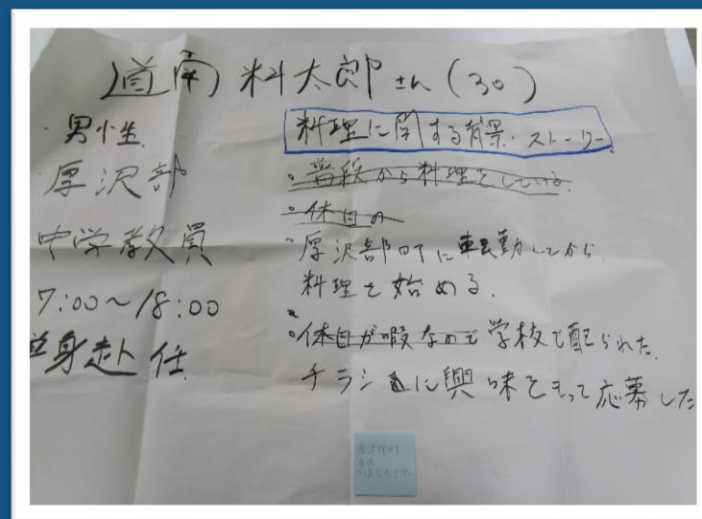 道南 料太郎さん(30)
・男性
厚沢部
中学教員
7:00～18:00
単身赴任
料理に関する背景・ストーリー
・普段から料理をしている。
・休日の
・厚沢部町に転勤してから
料理を始める。
・休日が暇なので 学校で配られた
チラシに興味をもって応募した